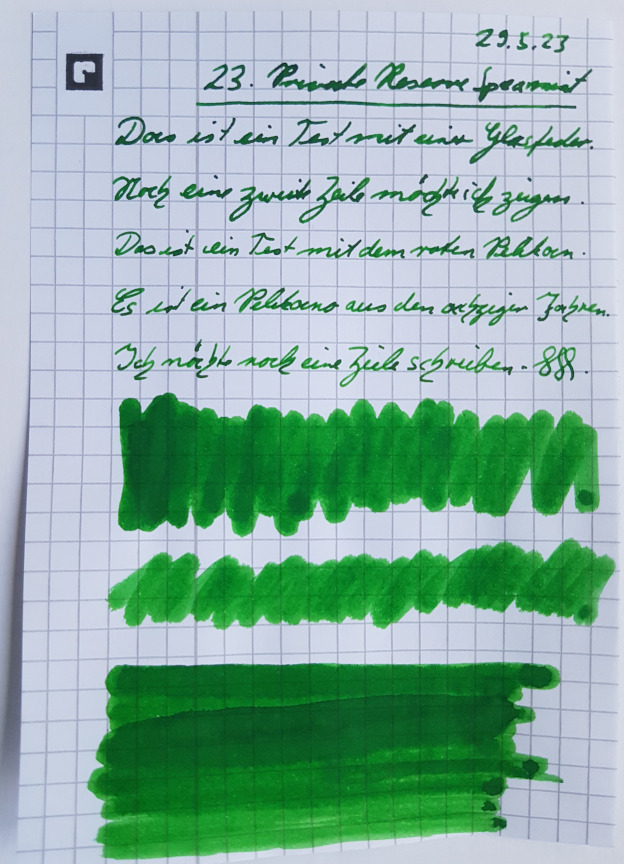 29.5.23
23. Private Reserve Spearmint
Das ist ein Test mit einer Glasfeder.
Noch eine zweite Zeile möchte ich zeigen.
Das ist ein Test mit dem roten Pelikan.
Es ist ein Pelikano aus den achziger Jahren.
Ich möchte noch eine Zeile schreiben.